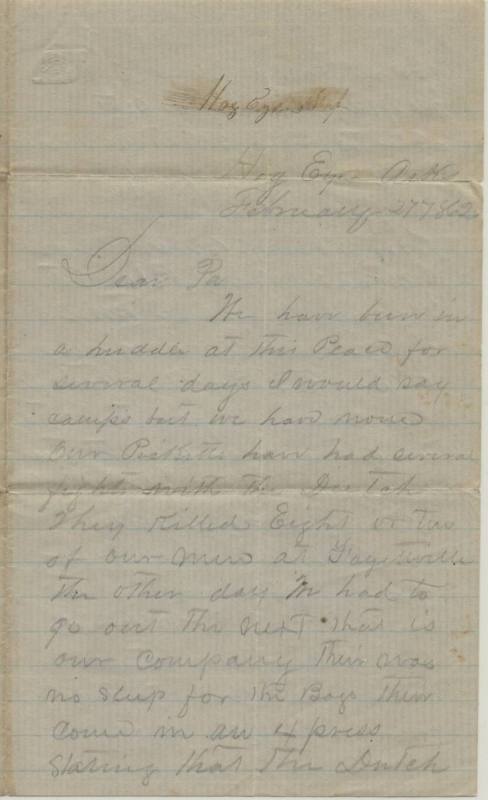 Hog Eye Ark
February 27 1862
Dear Pa
We have been in
a huddle at this Peace for
several days I would say
camps but we have none
Our Picketts have had several
fights with the Deutch
They Killed Eight or ten
of our men at Fayetteville
the other day We had to
go out the next that is
our Company Their was
no sleep for the Boys Their
Come in an express
Stating that the Dutch